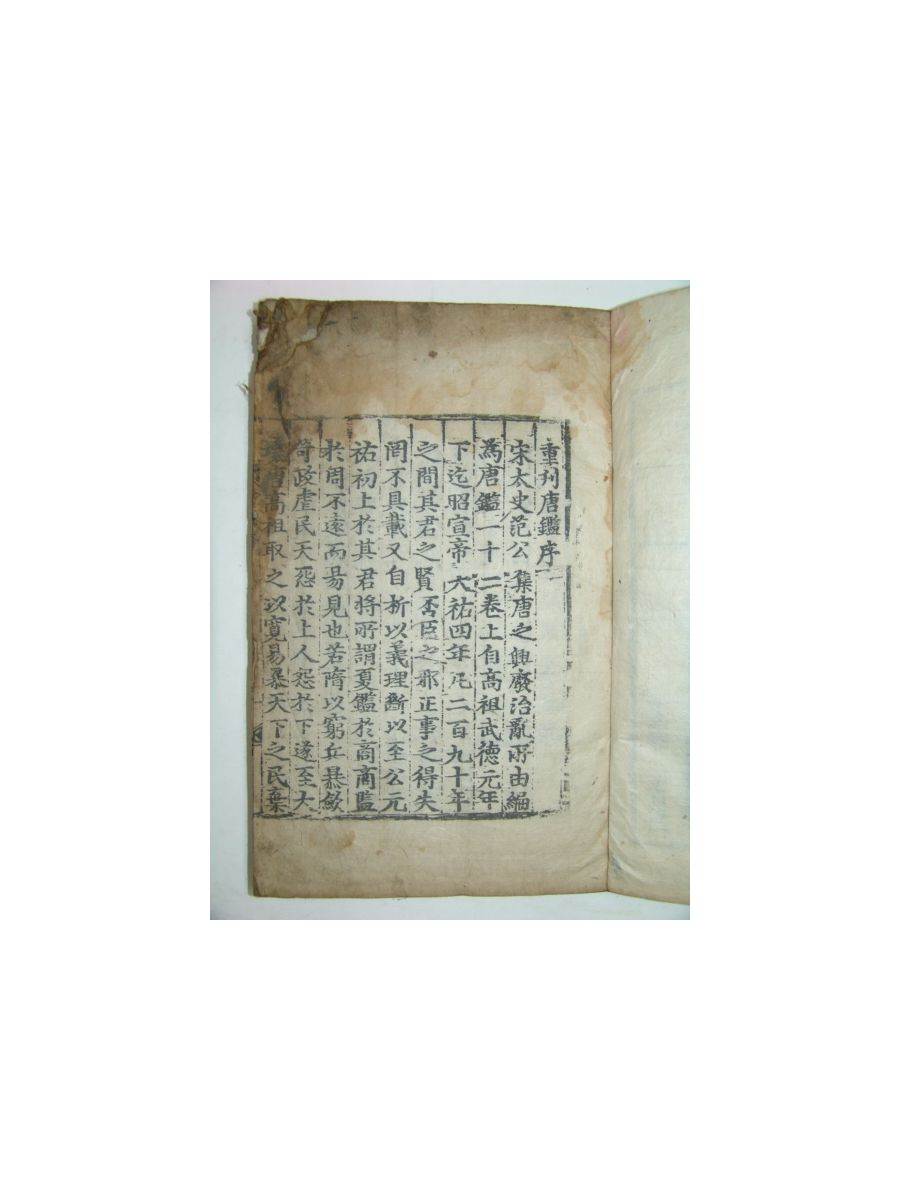 重刋唐鑑序
宋太史范公集唐之興廢治亂所由編
為唐鑑一十二卷上自高祖武德元年
下迄昭宣帝天祐四年凡二百九十年
之間其君之賢否臣之邪正事之得失
罔不具載又自折以義理斷以至公元
祐初上於其君將所謂夏鑑於商商監
於周不遠而易見也若隋以窮兵暴斂
苛政虐民天怨於上人怨於下遂至大
壞唐高祖取之以寬易暴天下之民棄